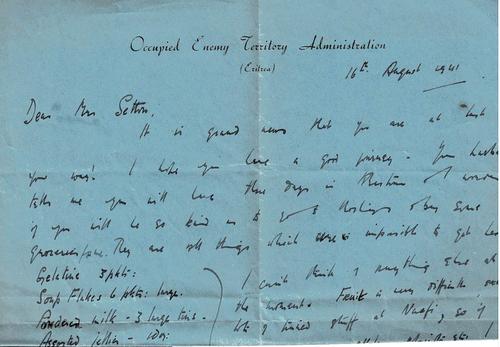 Occupied Enemy Territory Administration
(Eritrea)
16th August 1941
Dear Mrs Setton,
It is grand news that you are at last
your way! I hope you have a good journey - Your husba
tells me you will have three days in
if you will be so kind as to go to and buy some
groceries They are all things which are impossible to get here
Gelatine 3 pkts: I can't think of anything else at
Soap Flakes 6 pkts: large. the moment. Fruit is very difficult
Powdered milk - 3 large tins. lots of tinned stuff at Naafi, so if
Assorted jellies - 1 doz.